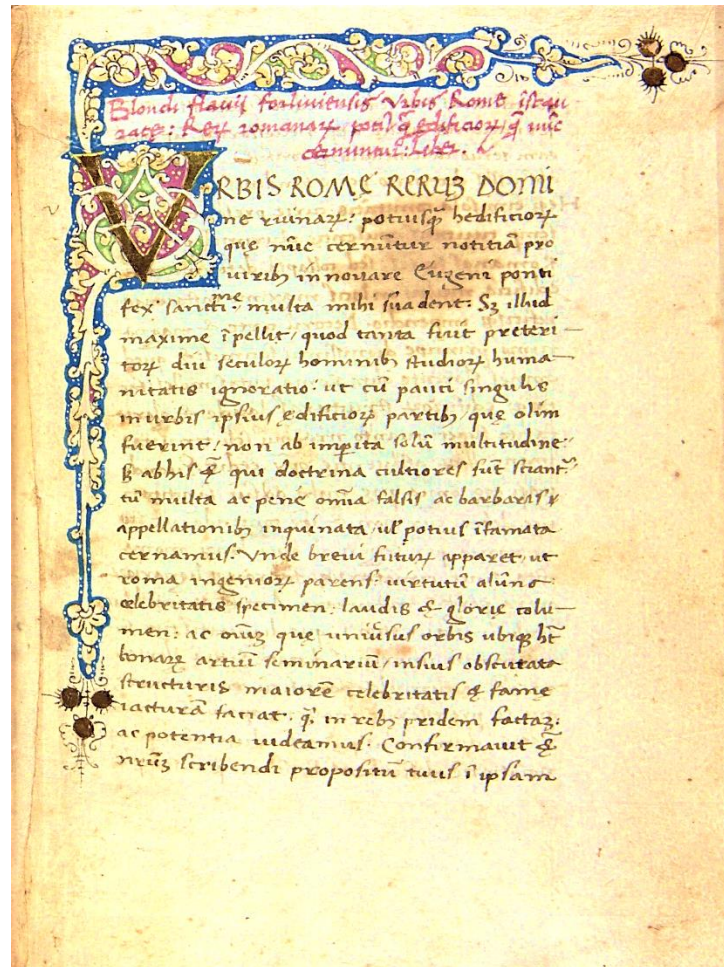 Blondi flavij forliviensis Vrbis Rome ĩstau
rate: Reꝝ romanaꝝ poti᷒ꝗ̃ edificioꝝ q̃ nũc
cernuntur: liber.
VRBIS ROMĘ RERUꝫ DOMI
ne ruinaꝝ: potiusꝗ̃ hedificioꝝ
quę nũc cernũtur notitiã pro
viribꝰ innovare Eugeni ponti
fex sanctiᵐᵉ: multa mihi suadent: Sꝫ illud
maxime ĩpellit, quod tanta fuit preteri-
toꝝ diu seculoꝝ hominibꝫ studioꝝ huma-
nitatis ignoratio: ut cũ pauci singulis
in urbis ipsius ędificioꝝ partibꝫ, quę olim
fuerint, non ab imperita solũ multitudine,
sꝫ ab his & qui doctrina cultiores sũt sciantᷣ:
tũ multa ac pene omĩa falsis ac barbaris
appellationibꝫ inquinata, ul̃ potius ĩfamata
cernamus. Vnde brevi futuꝝ apparet, ut
roma ingenioꝝ parens: virtutũ alũna
celebritatis specimen: laudis & glorię colu-
men: ac oĩuꝫ quę uniṽsus orbis ubiqꝫ hꝫt
bonaꝝ artiũ seminariũ, in suis obscurata
structuris maiorẽ celebritatis & famę
iacturã faciat, ꝗ̃ in rebꝫ pridem factaꝫ:
ac potentia videamus. Confirmavit &
nr̃uꝫ scribendi propositũ tuus ĩ ipsam